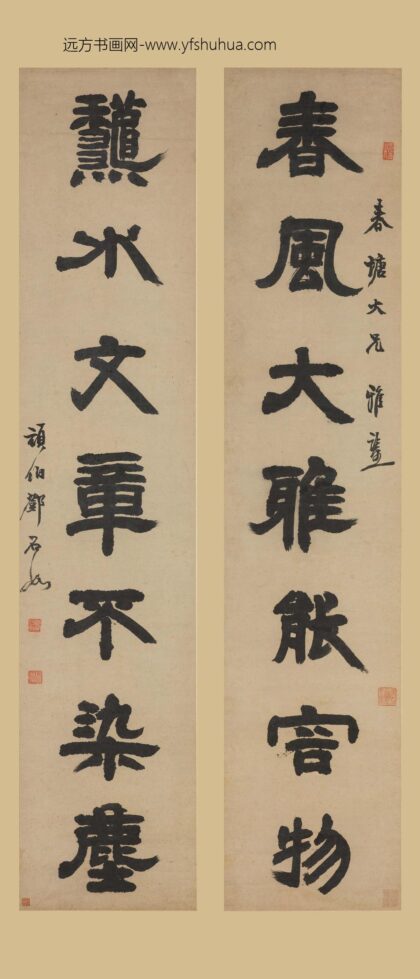 远方书画网-www.yfshuhua.com
春塘大兄雅鑒
春風大雅能容物
龝水文章不染塵
頑伯鄧石如